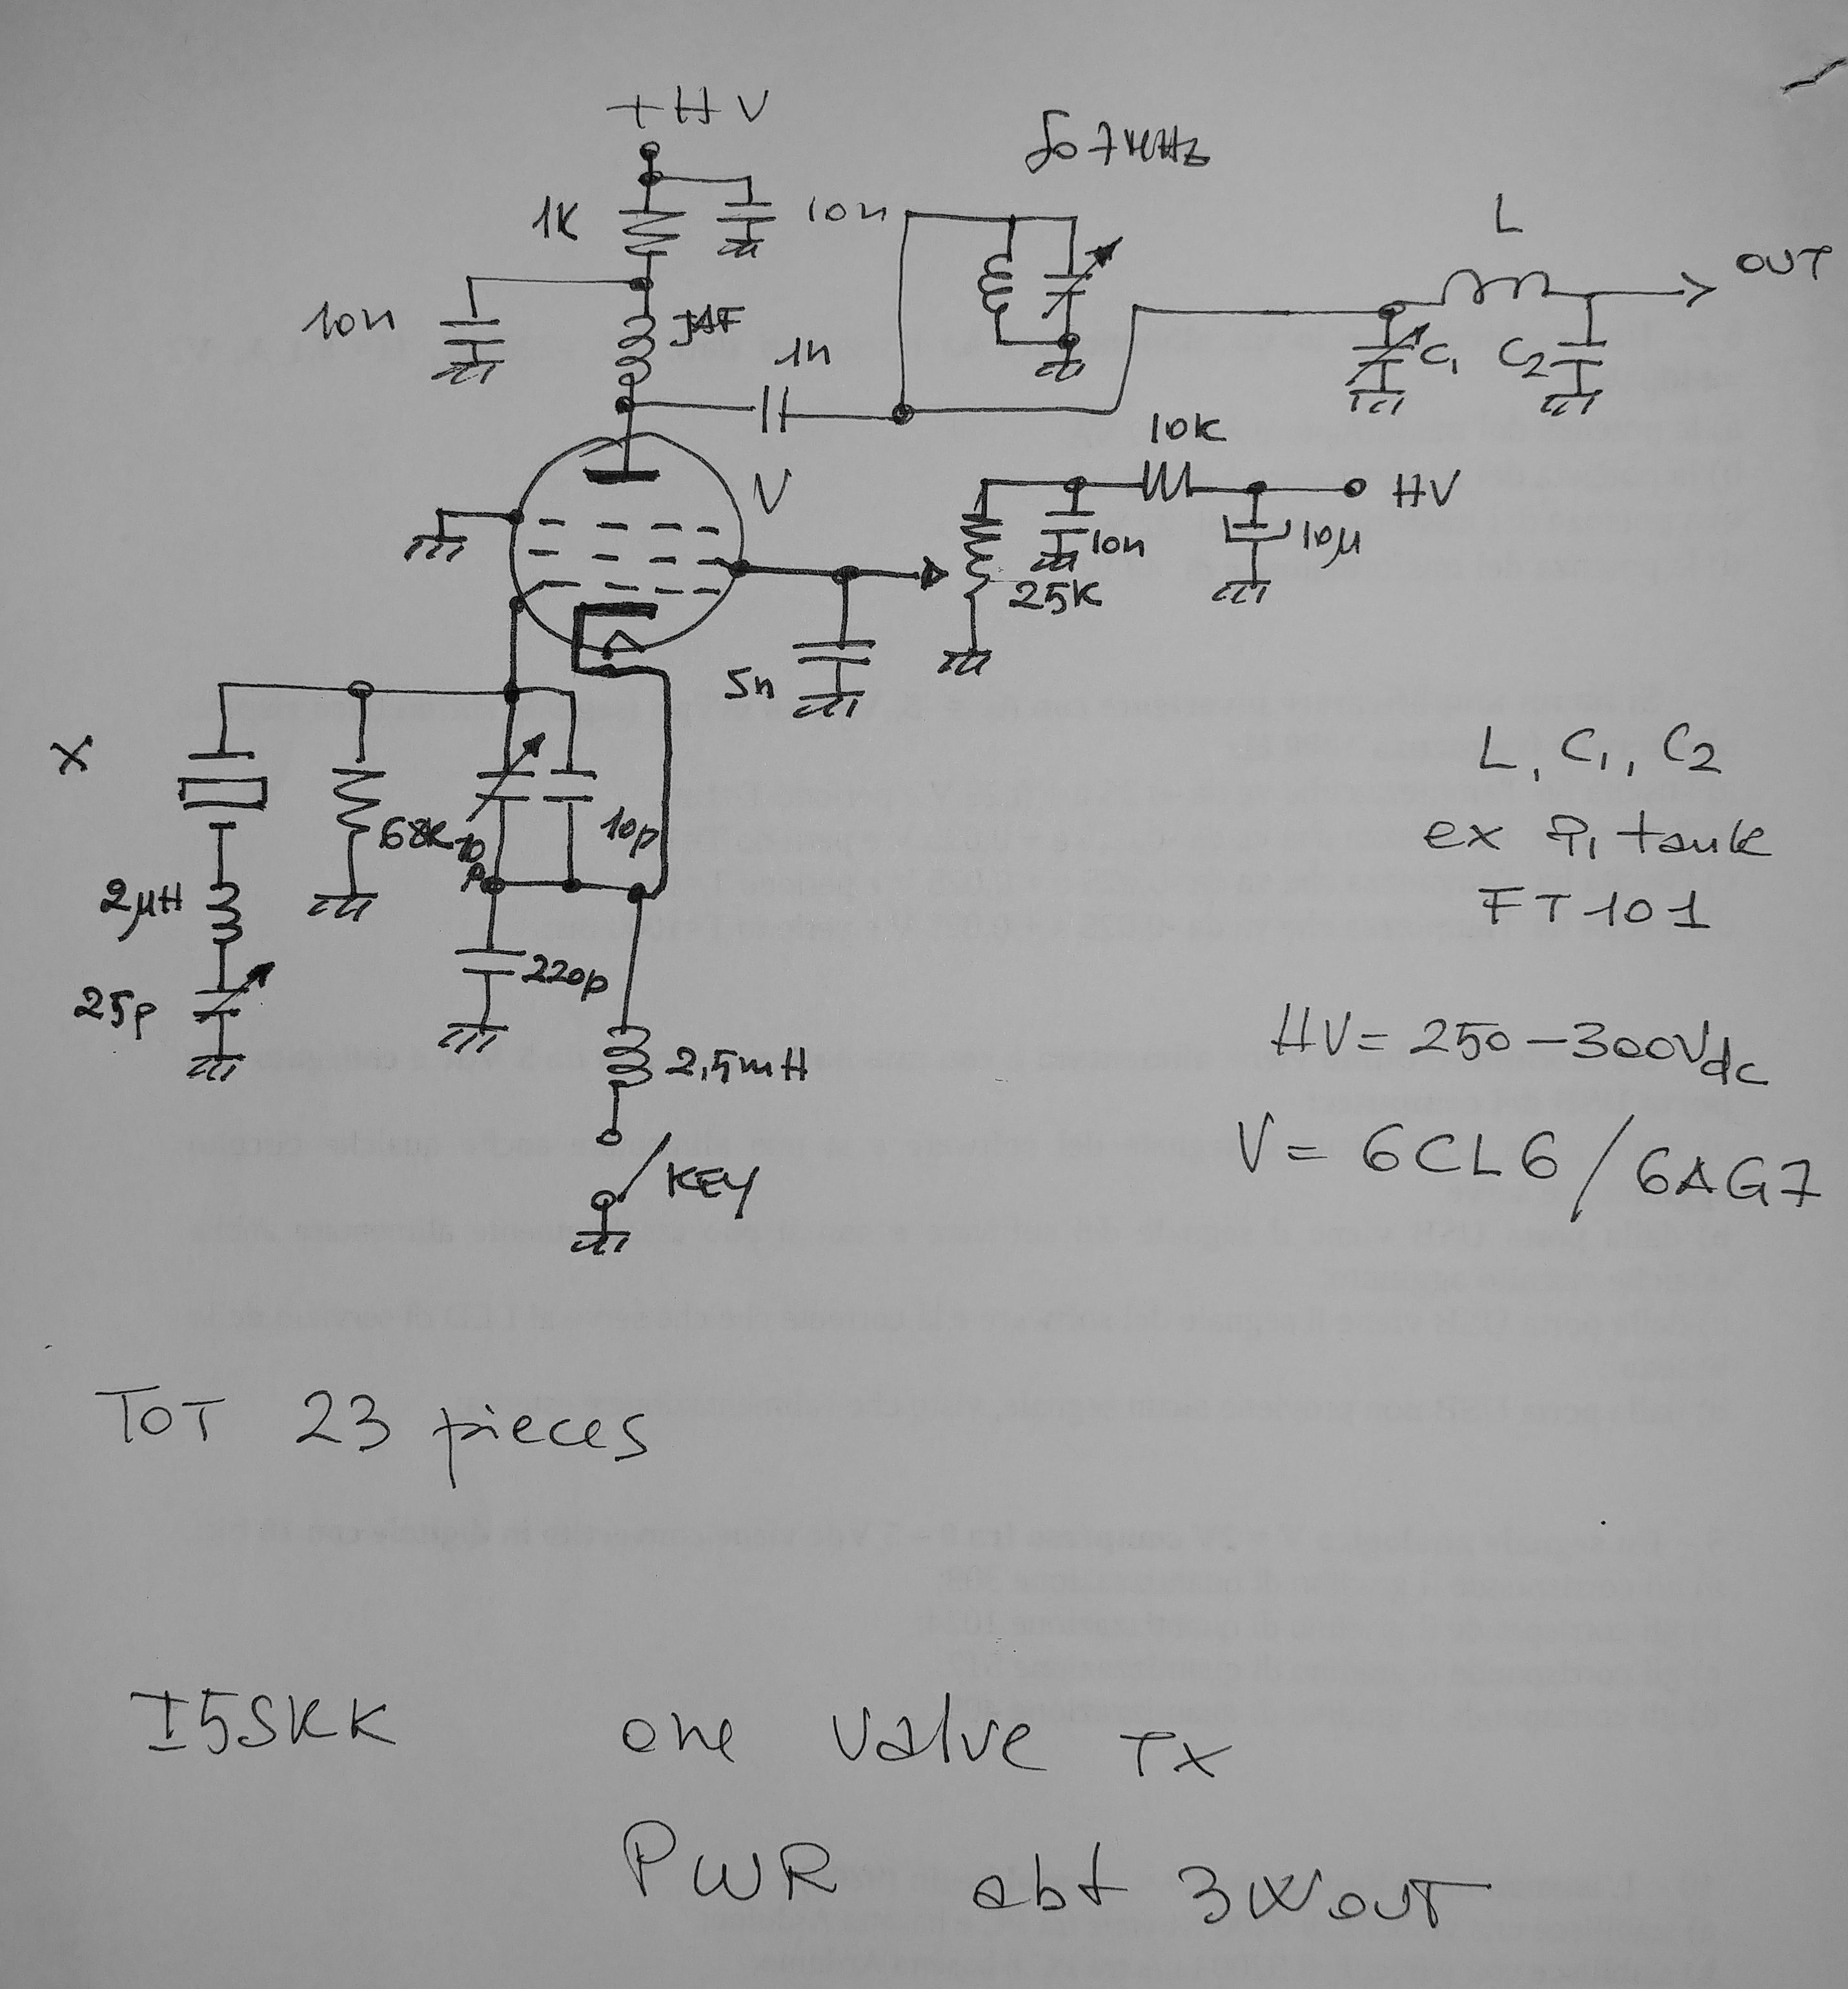 +HV
1K
10n
f0 7MHz
L
OUT
10n
JAF
1n
C1
C2
10K
HV
V
10n
10μ
25K
5n
X
68K
10p
10p
2μH
220p
25p
2,5mH
KEY
L, C1, C2
ex Pi tank
FT101
HV= 250-300Vdc
V= 6CL6/6AG7
TOT 23 pieces
I5SKK one valve TX
PWR abt 3W out